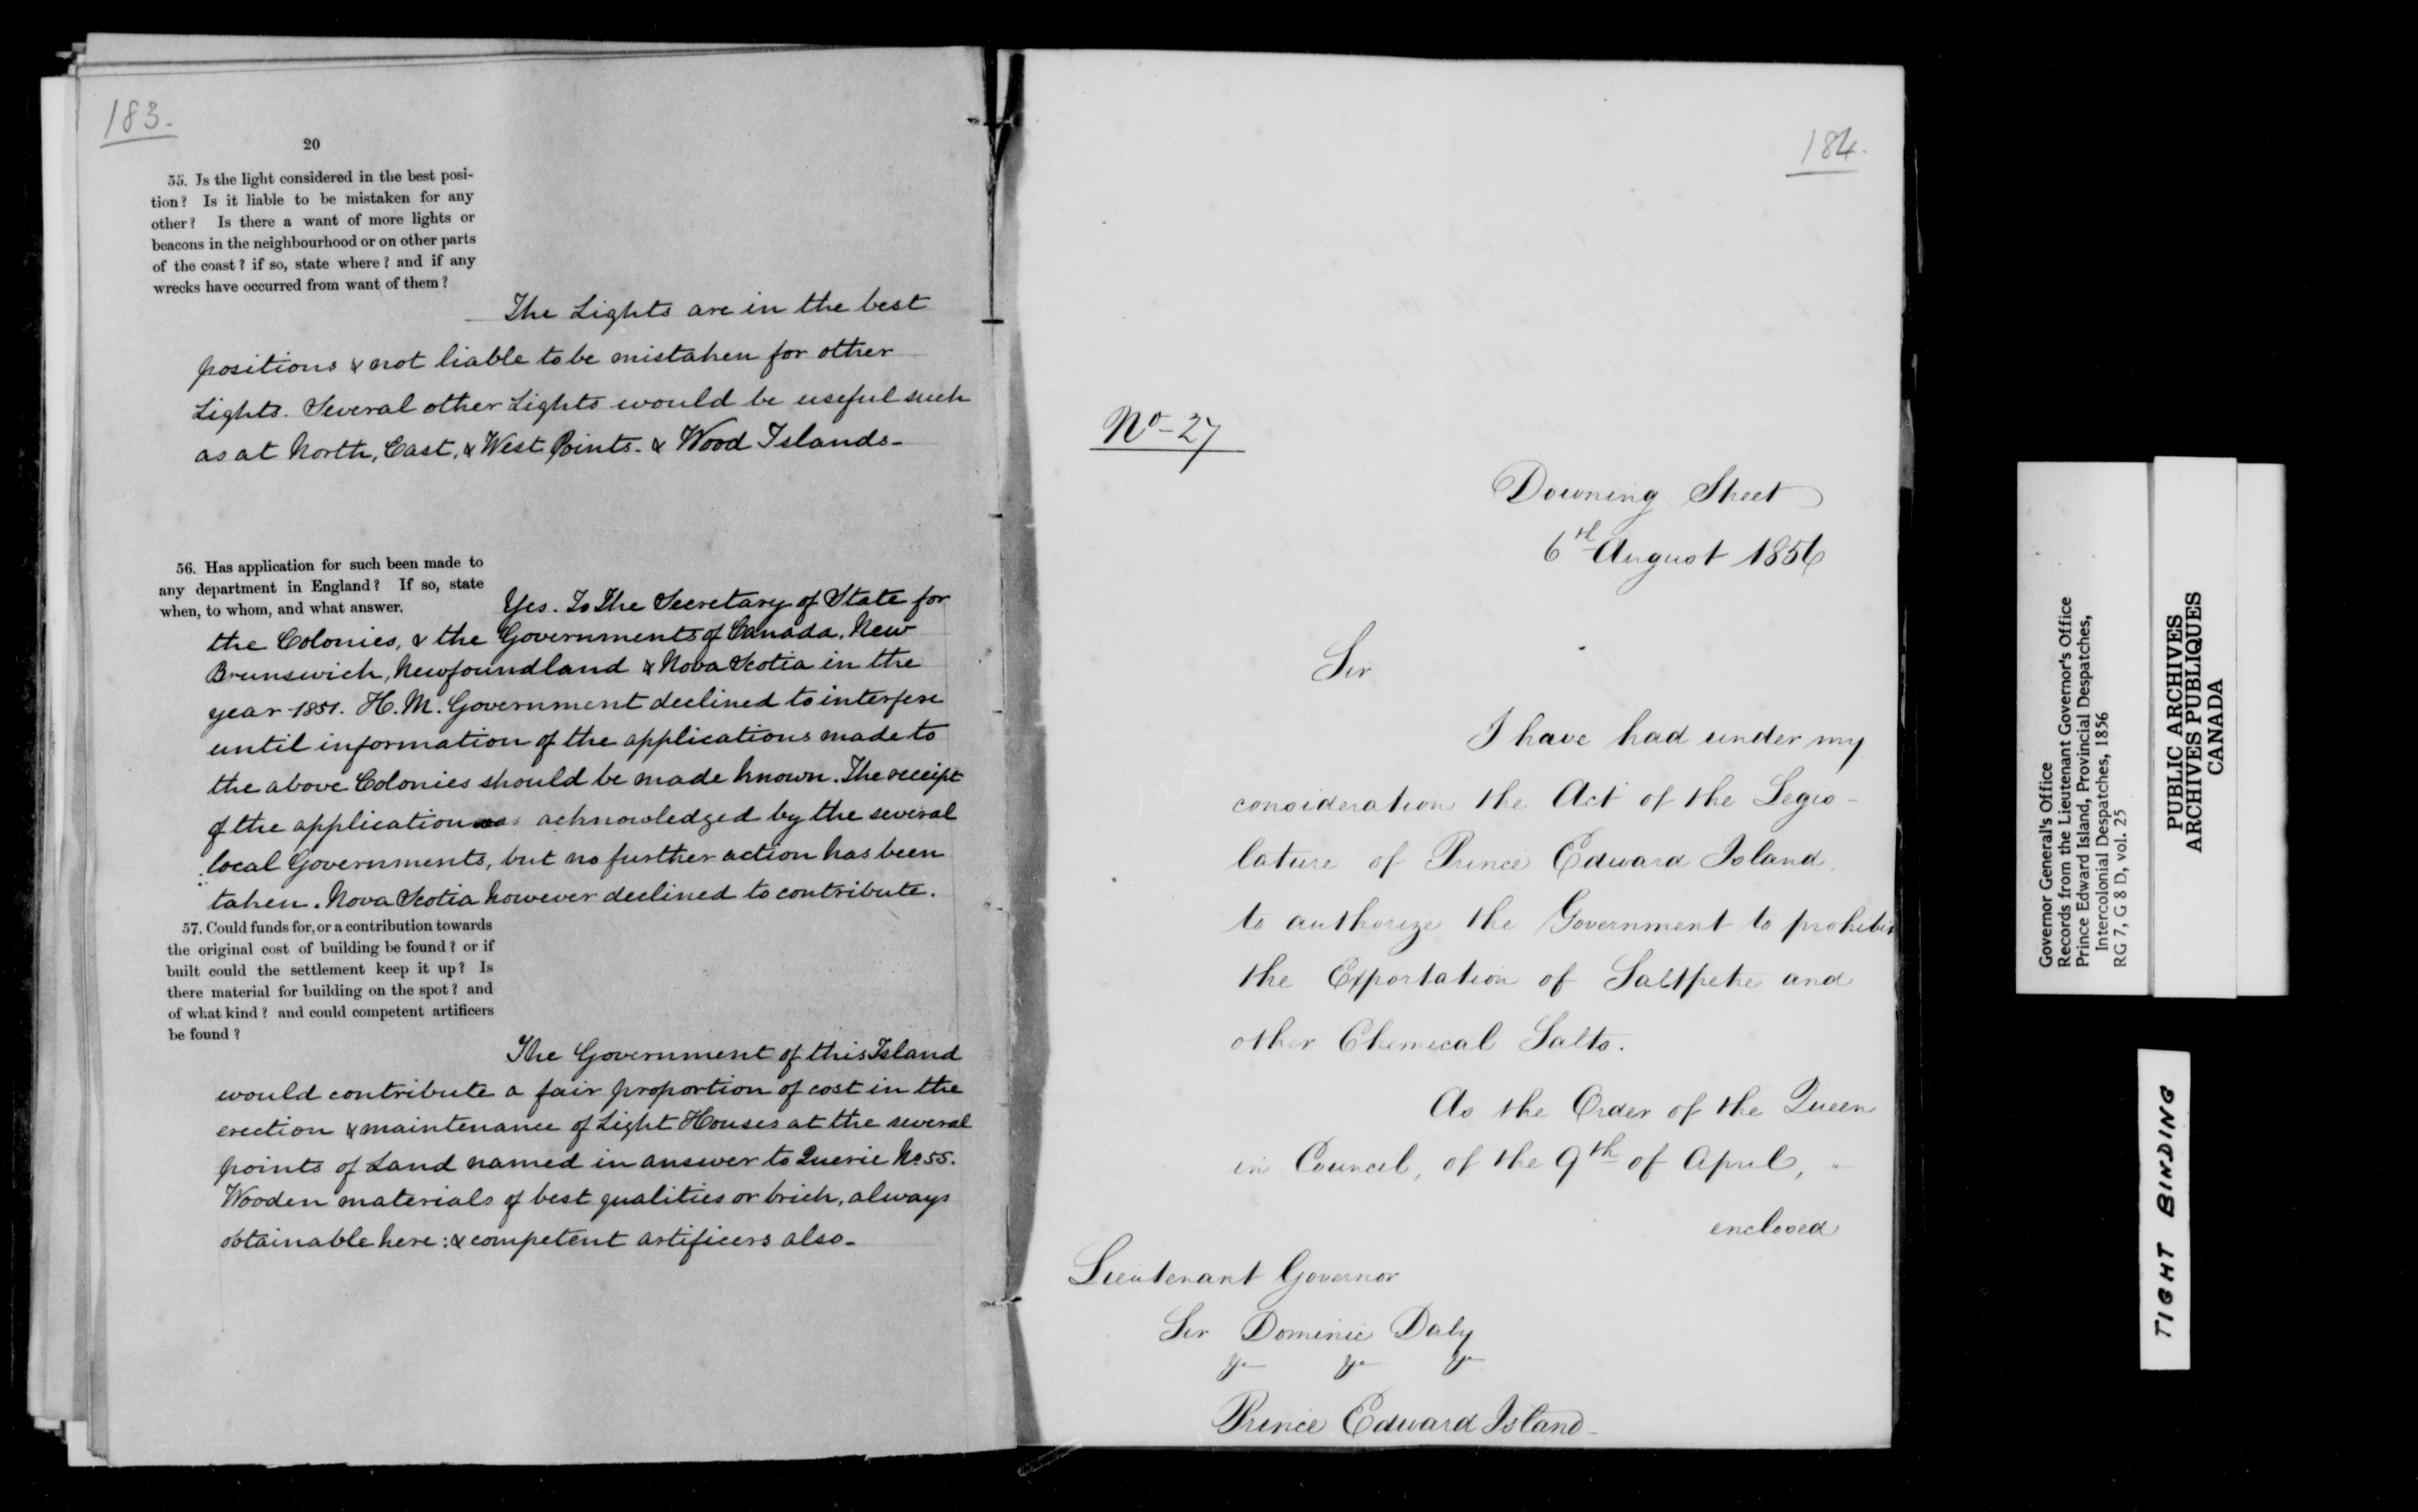 183.
20
55. Is the light considered in the best posi-
tion? Is it liable to be mistaken for any
other? Is there a want of more lights or
beacons in the neighbourhood or on other parts
of the coast? if so, state where? and if any
wrecks have occurred from want of them?
The Lights are in the best
positions & not liable to be mistaken for other
Lights. Several other Lights would be useful such
as at North, East, & West Points. & Wood Islands-
56. Has application for such been made to
any department in England? If so, state
when, to whom, and what answer.
Yes. To The Secretary of State for
the Colonies, & the Governments of Canada, New
Brunswick, Newfoundland & Nova Scotia in the
year 1851. H. M. Government declined to interfere
until information of the applications made to
the above Colonies should be made known. The receipt
of the application was acknowledged by the several
local Governments, but no further action has been
taken. Nova Scotia however declined to contribute.
57. Could funds for, or a contribution towards
the original cost of building be found? or if
built could the settlement keep it up? Is
there material for building on the spot? and
of what kind? and could competent artificers
be found?
The Government of this Island
would contribute a fair proportion of cost in the
erection & maintenance of Light Houses at the several
points of Land named in answer to Querie No 55.
Wooden materials of best qualities or brick, always
obtainable here: & competent artificers also-
184.
No- 27
Downing Street
6th August 1856
Sir
I have had under my
consideration the Act of the Legis-
lature of Prince Edward Island,
to authorize the Government to prohibit
the Exportation of Saltpetre and
other Chemical Salts.
As the Order of the Queen
in Council, of the 9th of April,
enclosed
Lieutenant Governor
Sir Dominic Daly
Prince Edward Island-
Governor General's Office
Records from the Lieutenant Governor's Office
Prince Edward Island, Provincial Despatches,
Intercolonial Despatches, 1856
RG 7, G 8 D, vol. 25
PUBLIC ARCHIVES
ARCHIVES PUBLIQUES
CANADA
TIGHT BINDING